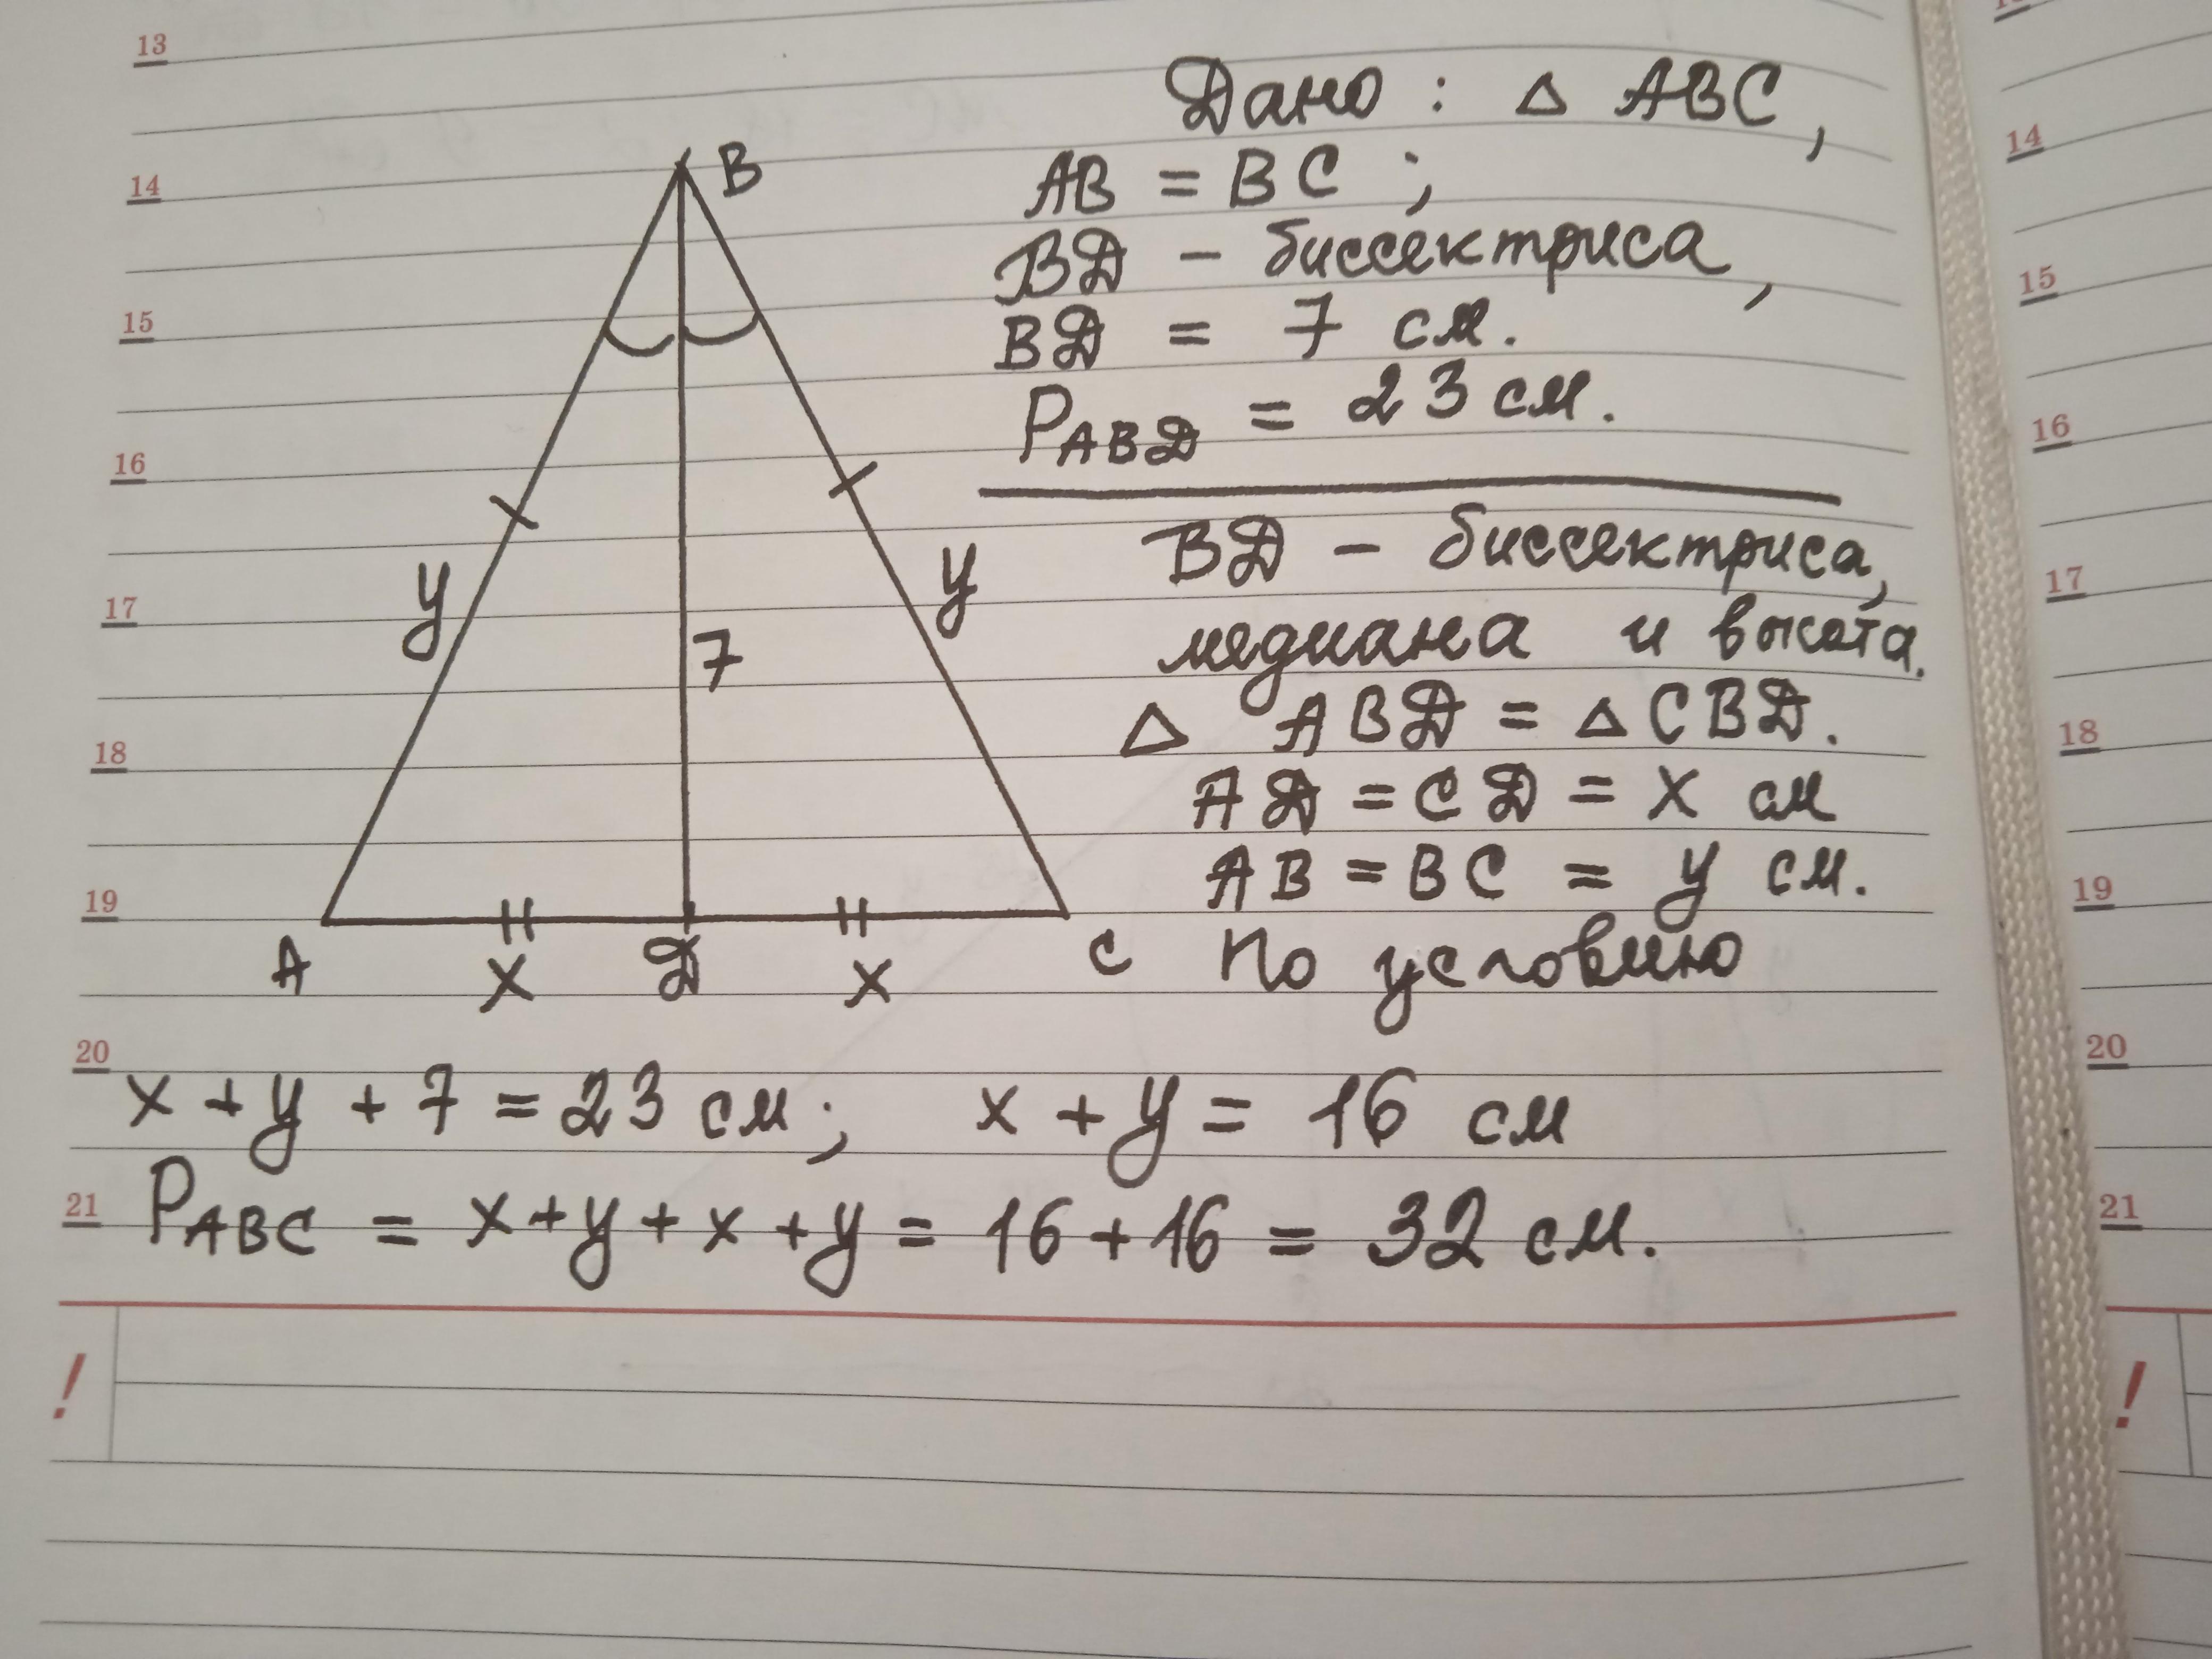 13
14
15
16
17
18
19
20
21
!
B
y
y
7
A
X
Д
X
C
Дано : △ ABC,
AB = BC ;
BД - биссектриса,
BД = 7 см.
PABД = 23 см.
BД - биссектриса,
медиана и высота.
△ ABД = △ CBД.
AД = CД = X см
AB = BC = y см.
По условию
x + y + 7 = 23 см; x + y = 16 см
PABC = x + y + x + y = 16 + 16 = 32 см.
14
15
16
17
18
19
20
21
!